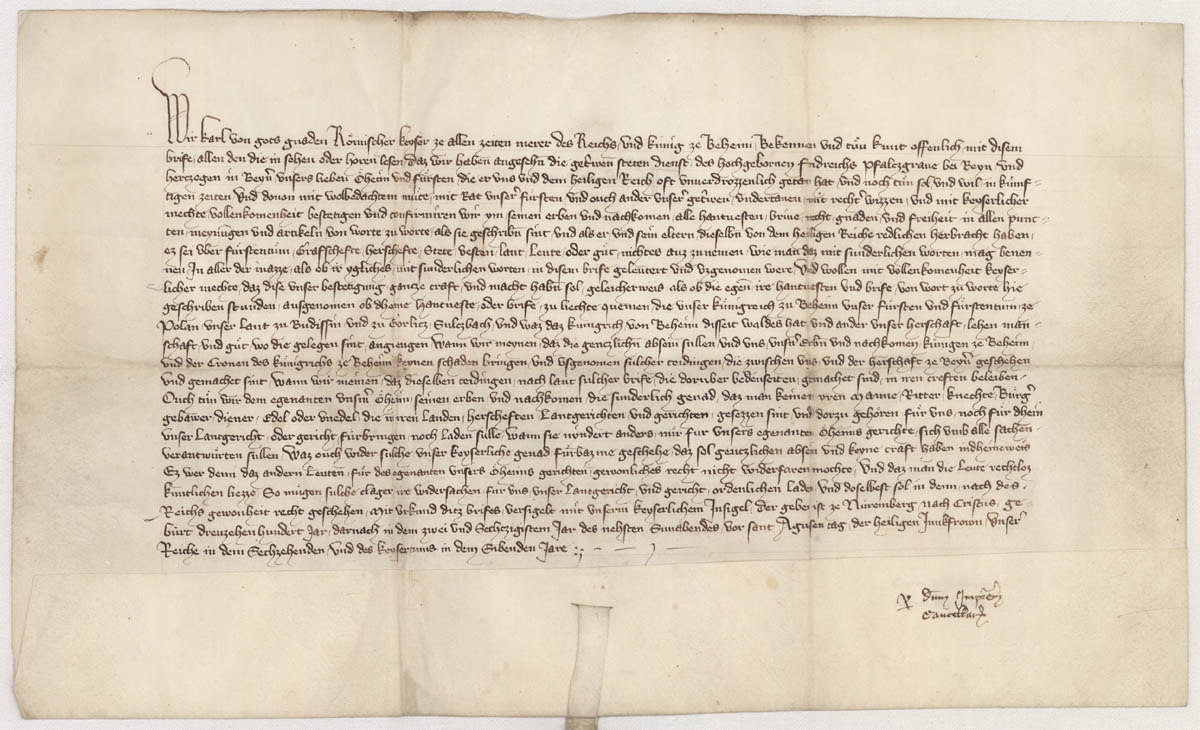 Wir Karl von gots gnaden Römischer keyser ze allen zeiten merer des Reichs, und künig ze Beheim Bekennen und tůn kunt offenlich mit disem
brife, allen den die in sehen oder horen lesen, daz wir haben angesehn die getrwen steten dienst, des hochgebornen Fridreichs Pfaltzgrave bei Reyn und
hertzogen in Beyrn unsers lieben Oheim und fürsten, die er uns und dem heiligen Reich oft unverdrozzenlich getan hat, und noch tůn sol und wil, in künf-
tigen zeiten Und dovon mit wolbedachtem můte, mit Rat unser fürsten und ouch ander unser getrwen, undertanen mit recht wizzen, und mit keyserlicher
mechte, vollenkomenheit bestetigen und confirmiren wir ym seinen erben und nachkomen, alle hantvesten, brive, recht, gnaden, und freiheit in allen punc-
ten, meynūgen und artikeln von worte zu worte, als sie geschribn sint, und als er, und sein eltern, dieselbn von dem heiligen Reiche redlichen herbracht haben,
ez sei uber fürstentum, Grafschefte, herschefte, Stete, vesten, lant, Leute, oder gůt, nichtes auz zu nemen, wie man daz mit sunderlichen worten, mag benen-
nen, In aller der mazze, als ob ir ygliches, mit sunderlichen worten, in disem brife geleutert und uzgenomen were, Und wollen mit vollenkomenheit keyser-
licher mechte, daz dise unser bestetigung gantze craft, und macht habn sol, geleicherweis als ob die egen ire hantvesten und brife, von wort zu worte hie
geschriben stunden, ausgenomen ob dheine hantveste, oder brife, zu liechte quemen, die unser künigreich zu Beheim unser fürsten und fürstentum, ze
Polan, unser Lant zu Budissin, und zu Görlicz, Sulczbach, und waz daz kunigrich von Beheim disseit waldes hat, und ander unser herschaft, lehen man-
schaft, und gůt, wo die gelegen sint, angiengen Wann wir meynen, daz die genczlichn absein sullen und uns, unsern Erbn und nachkomen, künigen ze Beheim,
und der Cronen des künigrichs ze Beheim, keynen schaden bringen, und usgenomen sulcher teidingen, die zwischen uns, und der herschaft ze Beyrn geschehen
und gemachet sint Wann wir meinen, daz dieselben teidingen, nach laut sulcher brife, die doruber bedenseiten, gemachet sind, in iren creften beleiben,
Ouch tůn wir dem egenanten unserm Oheim, seinen erben und nachkomen, die sunderlich genad, daz man keinen iren Manne, Ritter, knechte, Bürg
gebawer, diener, Edel oder unedel, die in iren Landen, herscheften Lantgerichten und gerichten, gesezzen sint, und dorzu gehören, für uns, noch für dhein
unser Lantgericht, oder gericht, fürbringen, noch laden sulle, wann sie nyndert anders, nur für unsers egenanten Oheims gerichte, sich umb alle sachen,
verantwürten sullen Waz ouch wider sulche, unser keyserliche genad fürbazme geschehe, daz sol genczlichen absein, und keyne craft haben in dheineweis
Ez wer denn, daz andern Leuten, für des egenanten unsers Oheims gerichten, gewonliches recht nicht widerfaren mochte, Und daz man die Leute rechtloz
kuntlichen liezze, So mügen sulche clager ire widersachen, für uns unser Lantgericht, und gericht, ordenlichen laden und doselbest sol in denn, nach des
Reichs gewonheit recht geschehen, Mit Urkund dicz brifes, versigelt mit unserm keyserlichem Insigel, der geben ist ze Nüremberg nach Cristus ge-
bürt dreuzehenhundert Jar, darnach in dem zwei und Sechtzigistem Jar des nehsten Sunabendes, vor sant Agnesen tag, der heiligen Junkfrown Unser
Reiche in dem Sechzehenden, und des keysertums in dem Sibenden Jare
p dnm Impatorem
Cancellar